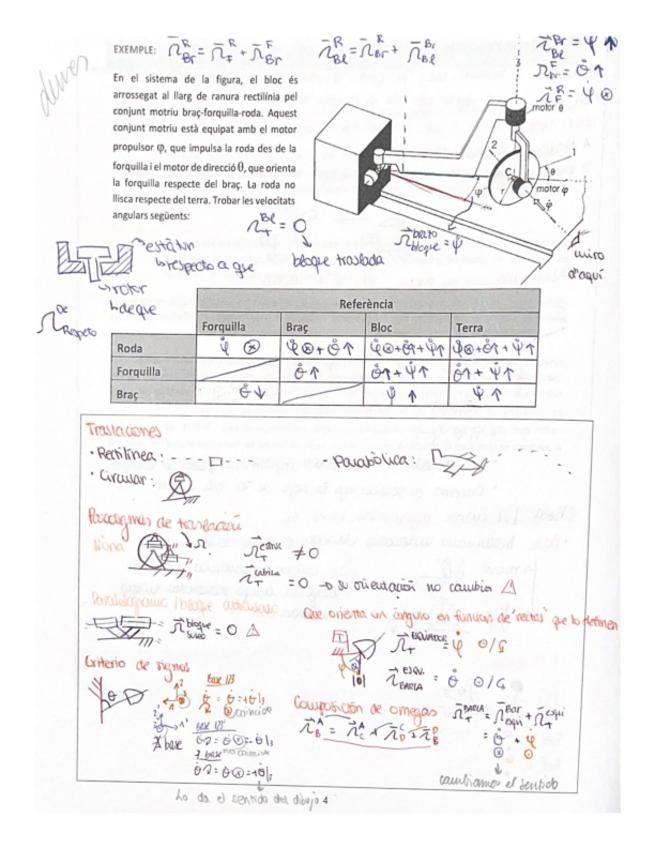 deures
EXEMPLE: Ω̄ᴿ_Br = Ω̄ᴿ_F + Ω̄ᶠ_Br
Ω̄ᴿ_Bl = Ω̄ᴿ_Br + Ω̄ᴮʳ_Bl
Ω̄ᴮʳ_Bl = ψ̇ ↑
Ω̄ᶠ_Br = θ̇ ↑
Ω̄ᴿ_F = φ̇ ⊗
En el sistema de la figura, el bloc és
arrossegat al llarg de ranura rectilínia pel
conjunt motriu braç-forquilla-roda. Aquest
conjunt motriu està equipat amb el motor
propulsor φ, que impulsa la roda des de la
forquilla i el motor de direcció θ, que orienta
la forquilla respecte del braç. La roda no
llisca respecte del terra. Trobar les velocitats
angulars següents:
3
motor θ
2
1
C
θ
r
ψ
motor φ
φ̇
Ω̄ brazo bloque = ψ̇
miro
d'aquí
Ω̄ᴮˡ_T = 0
bloque traslada
estàtor
↳ respecto a que
rotor
↳ de que
Ω̄ De Respecto
Referència
Forquilla Braç Bloc Terra
Roda φ̇ ⊗ φ̇⊗+θ̇↑ φ̇⊗+θ̇↑+ψ̇↑ φ̇⊗+θ̇↑+ψ̇↑
Forquilla θ̇↑ θ̇↑+ψ̇↑ θ̇↑+ψ̇↑
Braç θ̇↓ ψ̇ ↑ ψ̇ ↑
Traslaciones
· Rectilínea:
· Parabòlica:
· Circular:
Paradigmas de traslación
Noria
Ω
Ω̄ ≠ 0
Ω̄ cabina T = 0 → su orientación no cambia ⚠
Ω̄ bloque suelo = 0 ⚠
Que orienta un ángulo en función de "rectas" que lo definen
T
Ω̄ esquiador T = φ̇ ⊙/G
Ω̄ esqu. BARCA = θ̇ ⊙/G
Criterio de signos
θ
Base 123
θ̇ = θ̇⊙ = +θ̇|₃
coincide
no coincide
≠ base
Composición de omegas
Ω̄ᴬ_B = Ω̄ᴬ_C + Ω̄ᶜ_D + Ω̄ᴰ_B
Ω̄ BARCA T = Ω̄ Bar esqui + Ω̄ esqui T
= θ̇ + φ̇
cambiamos el sentido
Lo da el sentido del dibujo 4